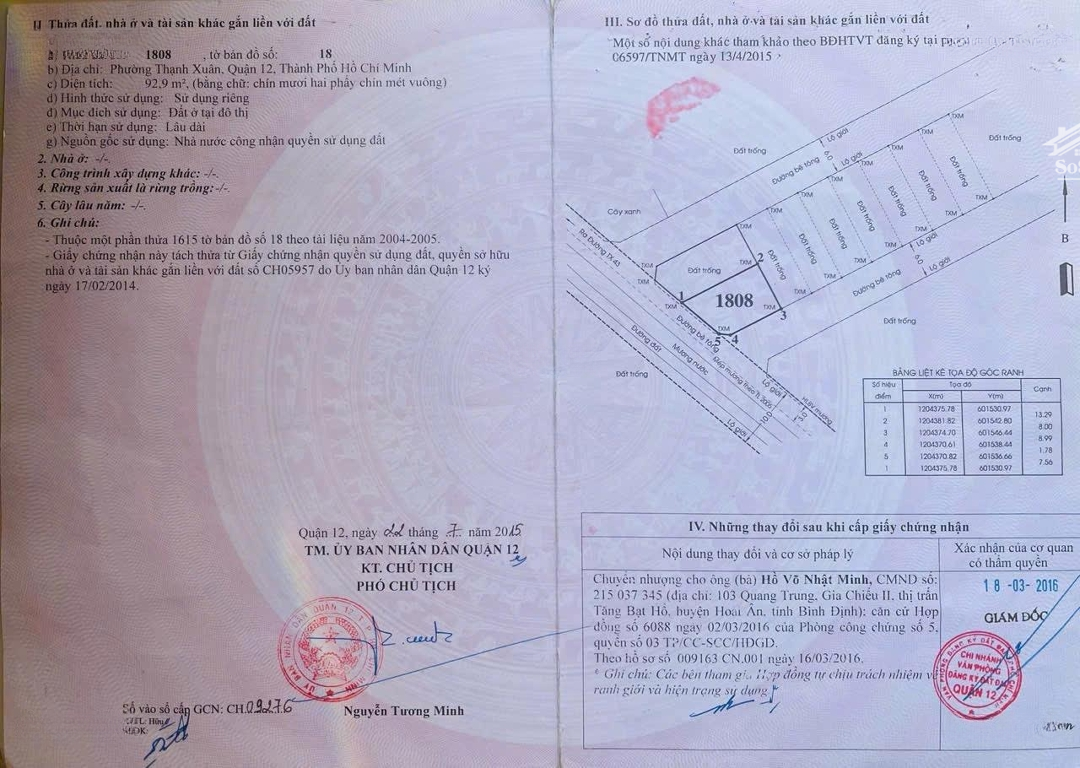 II Thửa đất, nhà ở và tài sản khác gắn liền với đất
1808 , tờ bản đồ số: 18
b) Địa chỉ: Phường Thạnh Xuân, Quận 12, Thành Phố Hồ Chí Minh
c) Diện tích: 92,9 m², (bằng chữ: chín mươi hai phẩy chín mét vuông)
d) Hình thức sử dụng: Sử dụng riêng
đ) Mục đích sử dụng: Đất ở tại đô thị
e) Thời hạn sử dụng: Lâu dài
g) Nguồn gốc sử dụng: Nhà nước công nhận quyền sử dụng đất
2. Nhà ở: -/-.
3. Công trình xây dựng khác: -/-.
4. Rừng sản xuất là rừng trồng: -/-.
5. Cây lâu năm: -/-.
6. Ghi chú:
- Thuộc một phần thửa 1615 tờ bản đồ số 18 theo tài liệu năm 2004-2005.
- Giấy chứng nhận này tách thửa từ Giấy chứng nhận quyền sử dụng đất, quyền sở hữu
nhà ở và tài sản khác gắn liền với đất số CH05957 do Ủy ban nhân dân Quận 12 ký
ngày 17/02/2014.
Quận 12, ngày 22 tháng 7 năm 2015
TM. ỦY BAN NHÂN DÂN QUẬN 12
KT. CHỦ TỊCH
PHÓ CHỦ TỊCH
Số vào sổ cấp GCN: CH.09276
Nguyễn Tương Minh
III. Sơ đồ thửa đất, nhà ở và tài sản khác gắn liền với đất
Một số nội dung khác tham khảo theo BĐHTVT đăng ký tại
06597/TNMT ngày 13/4/2015
TXM
Lộ giới
Đất trống
Đất trống
6.0
Lộ giới
TXM
TXM
Đường bê tông
TXM
TXM
Đất trống
TXM
Đất trống
Cây xanh
TXM
Đất trống
TXM
Đất trống
TXM
Ra Đường TX 43
TXM
Đất trống
2
TXM
TXM
Lộ giới
6.0
Lộ giới
B
TXM
1
1808
TXM
3
Đường bê tông
TXM
5
4
Đất trống
Đường bê tông
Đường đất
Mương nước
Đất trống
Lộ giới
HLBV mương
10.0
Lộ giới
BẢNG LIỆT KÊ TỌA ĐỘ GÓC RANH
Số hiệu điểm Tọa độ Cạnh
X(m) Y(m)
1 1204375.78 601530.97
13.29
2 1204381.82 601542.80
8.00
3 1204374.70 601546.44
8.99
4 1204370.61 601538.44
1.78
5 1204370.82 601536.66
7.56
1 1204375.78 601530.97
IV. Những thay đổi sau khi cấp giấy chứng nhận
Nội dung thay đổi và cơ sở pháp lý
Xác nhận của cơ quan
có thẩm quyền
Chuyển nhượng cho ông (bà) Hồ Võ Nhật Minh, CMND số:
215 037 345 (địa chỉ: 103 Quang Trung, Gia Chiểu II, thị trấn
Tăng Bạt Hổ, huyện Hoài Ân, tỉnh Bình Định); căn cứ Hợp
đồng số 6088 ngày 02/03/2016 của Phòng công chứng số 5,
quyển số 03 TP/CC-SCC/HĐGD.
Theo hồ sơ số 009163 CN.001 ngày 16/03/2016.
* Ghi chú: Các bên tham gia Hợp đồng tự chịu trách nhiệm về
ranh giới và hiện trạng sử dụng
18 -03- 2016
GIÁM ĐỐC
CHI NHÁNH
VĂN PHÒNG
ĐĂNG KÝ ĐẤT ĐAI
QUẬN 12